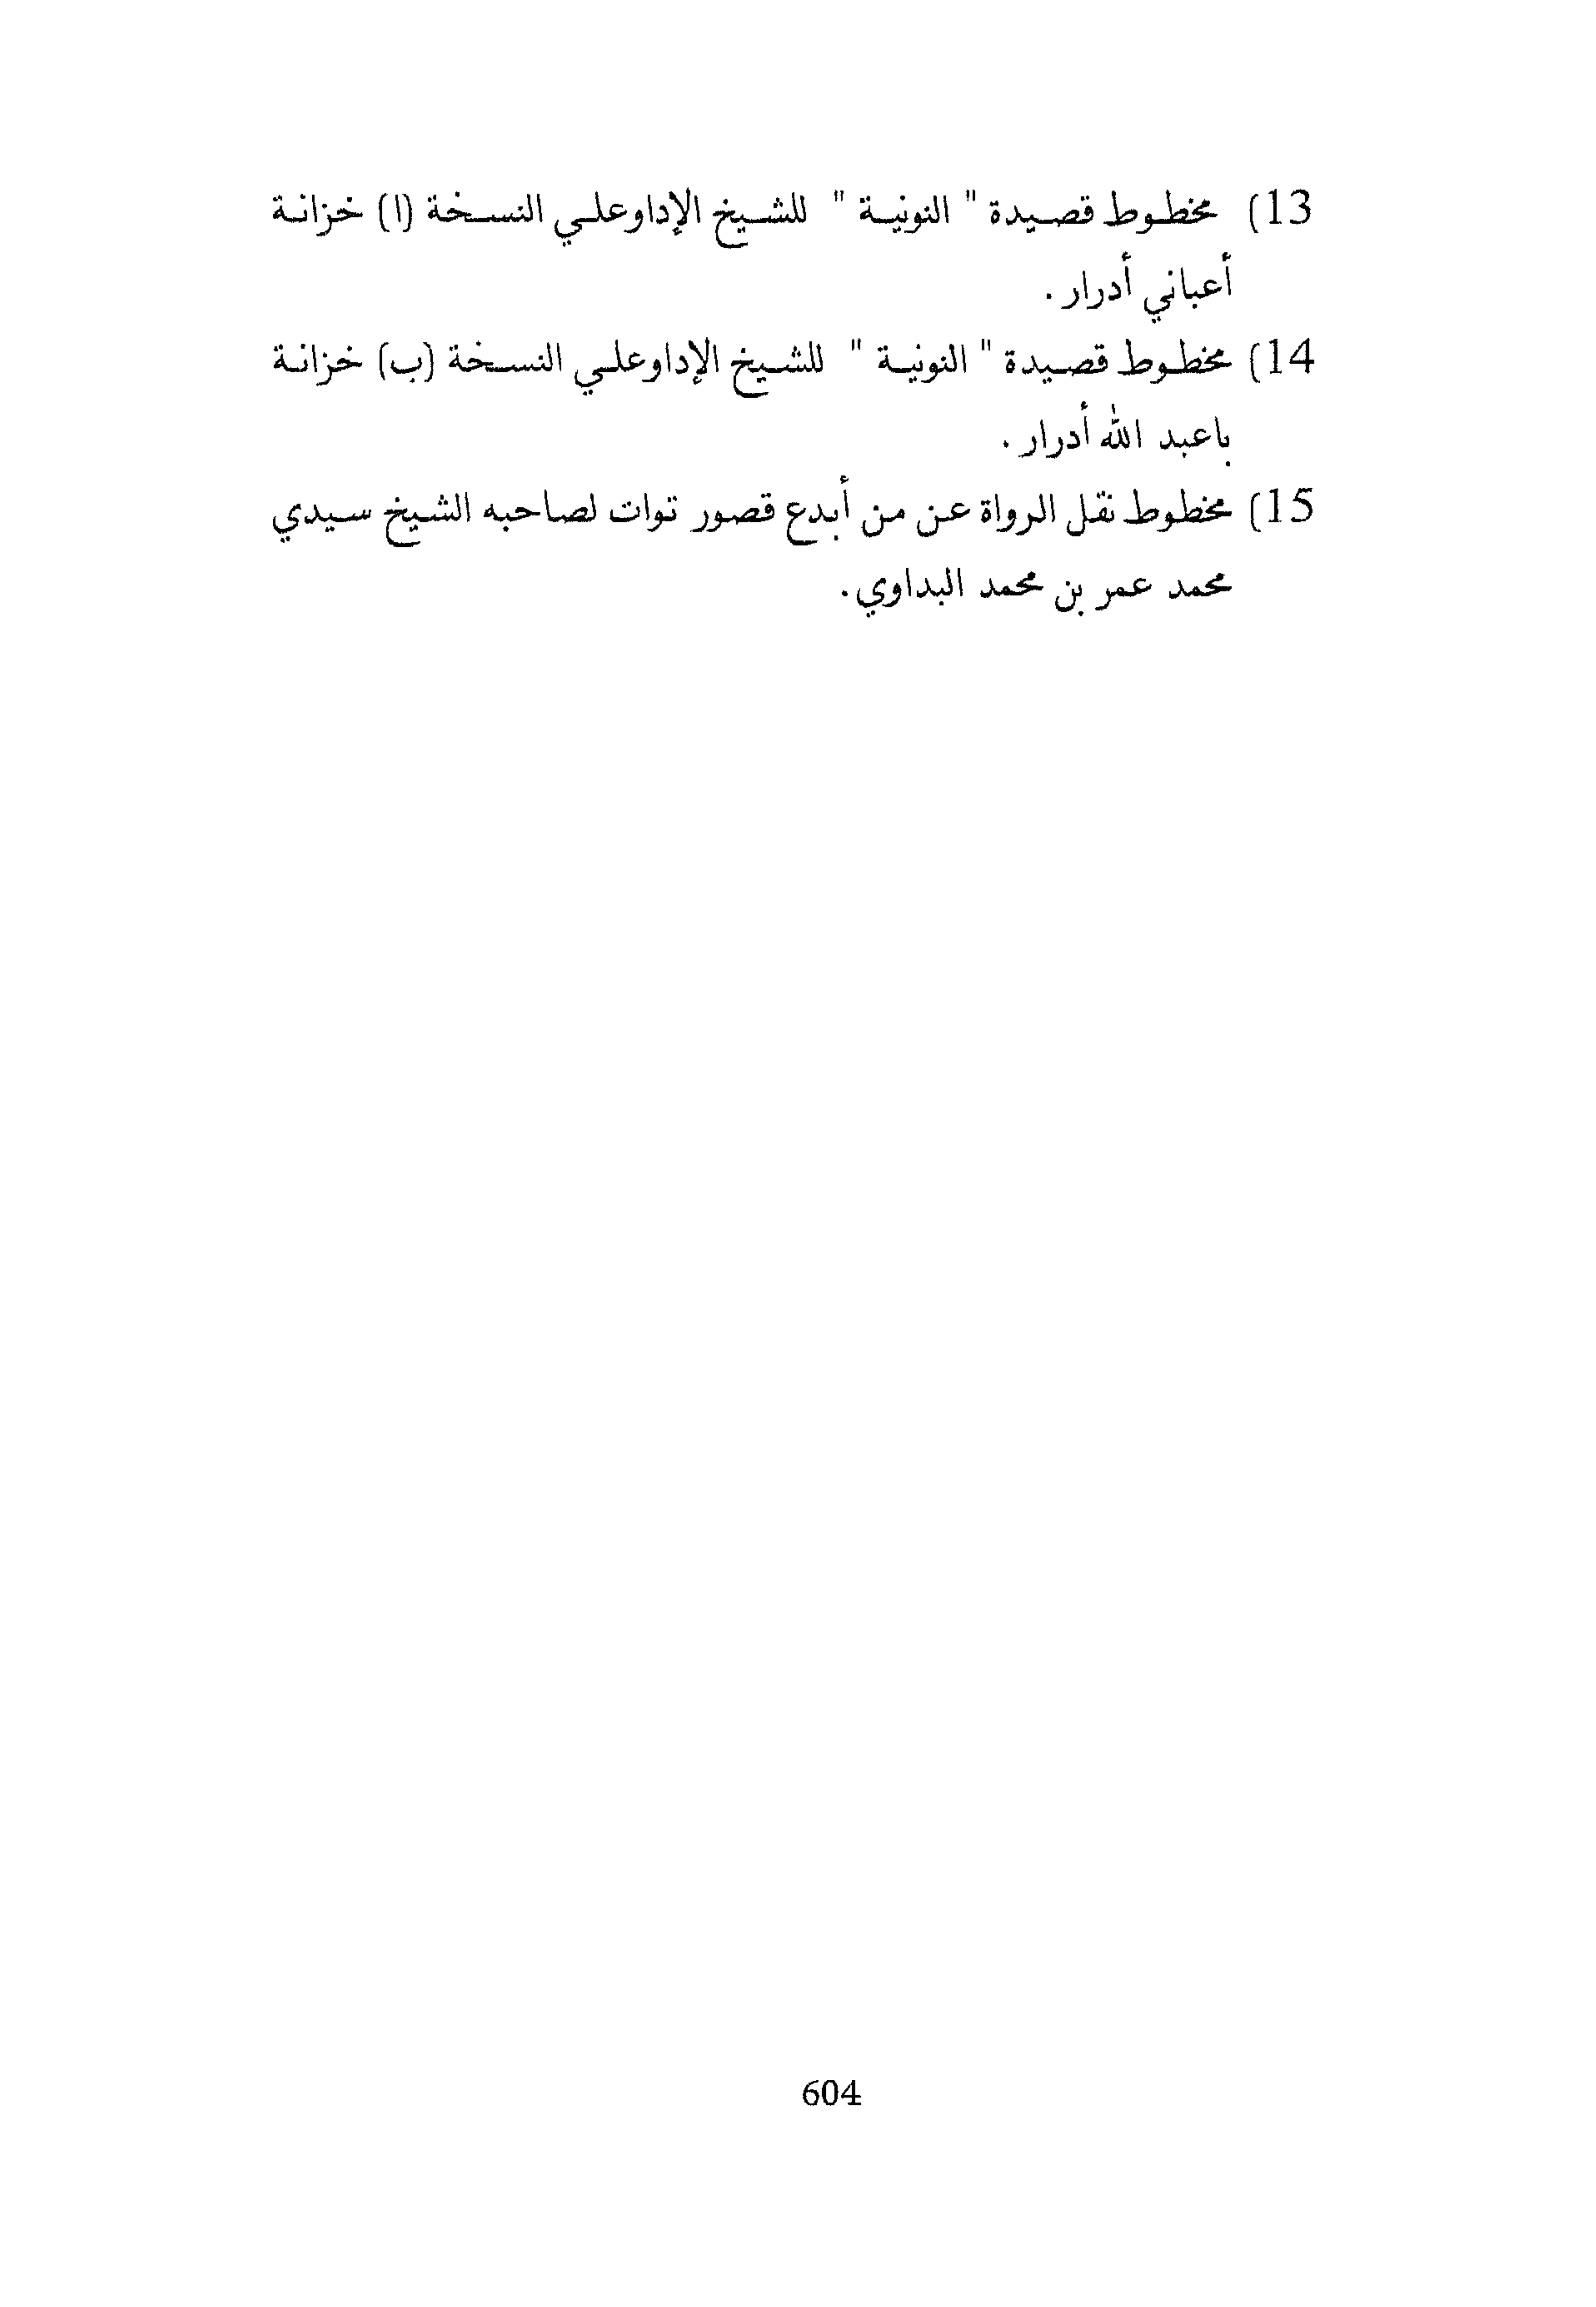 13) مخطوط قصيدة " النونية " للشيخ الإداوعلي النسخة (ا) خزانة
أعباني أدرار .
14) مخطوط قصيدة " النونية " للشيخ الإداوعلي النسخة (ب) خزانة
باعبد الله أدرار .
15) مخطوط نقل الرواة عن من أبدع قصور توات لصاحبه الشيخ سيدي
محمد عمر بن محمد البداوي.
604